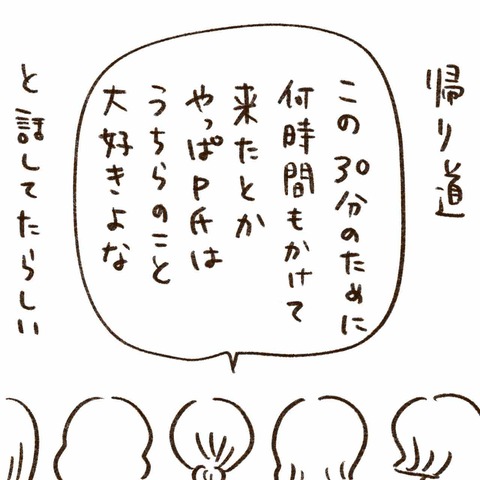 帰り道
この30分のために
何時間もかけて
来たとか
やっぱP氏は
うちらのこと
大好きよな
と話してたらしい